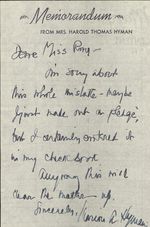 Memorandum
FROM MRS. HAROLD THOMAS HYMAN
Dear Miss Ring -
Am sorry about
this whole mistake - maybe
I just made out a pledge,
but I certainly entered it
in my check book
Anyway this will
clear the matter up.
Sincerely,
Hyman